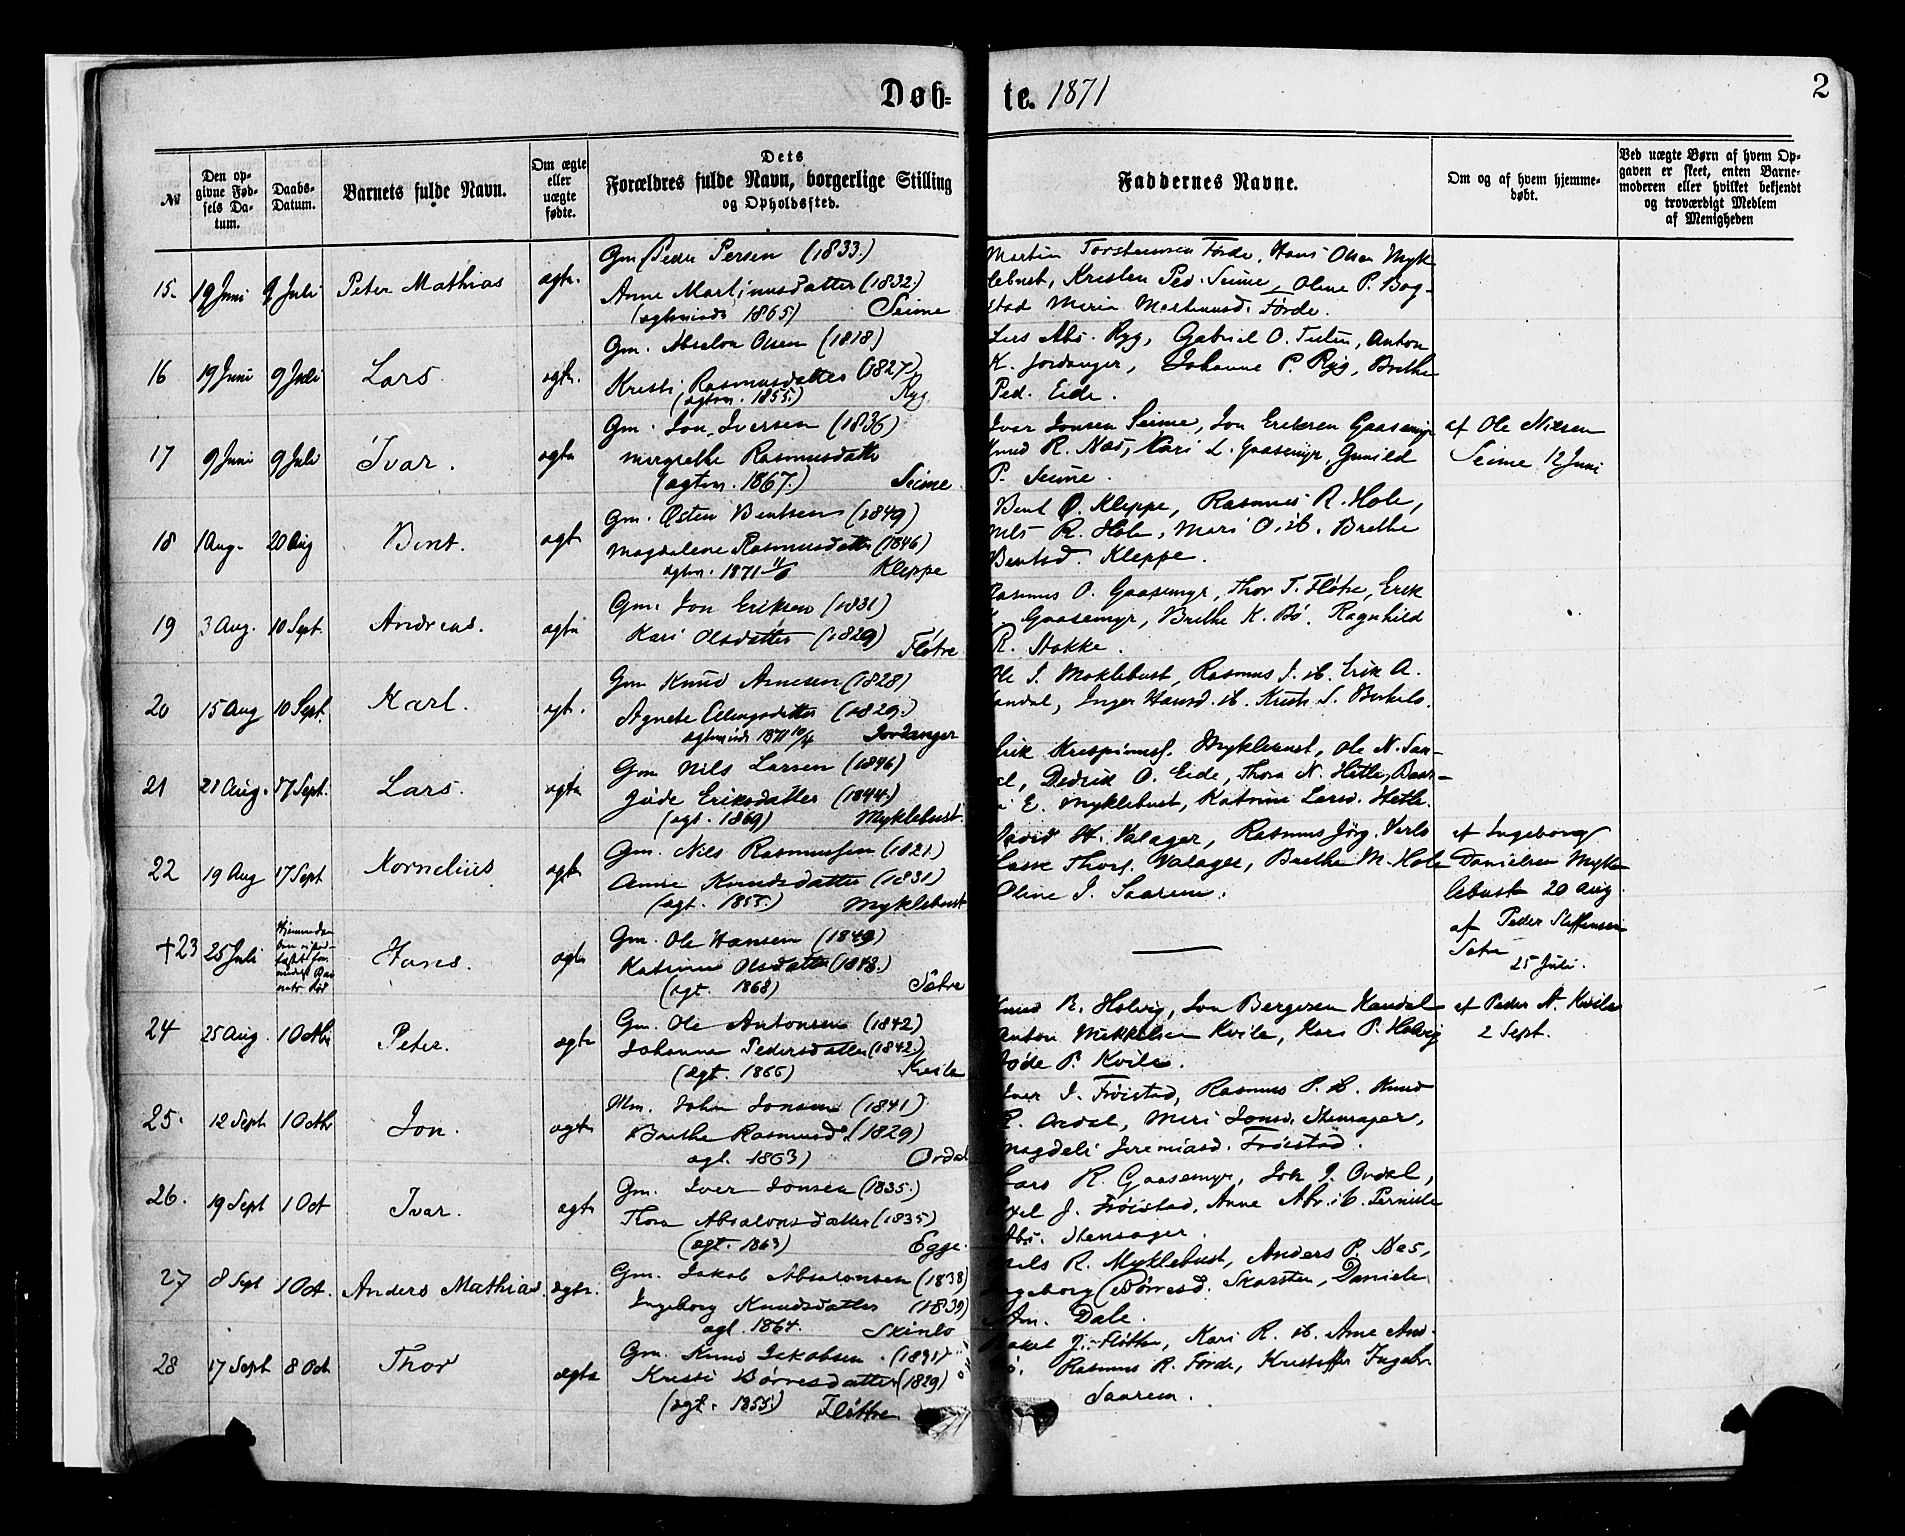 Døb-
te. 1871
2
№
Den opgivne Fødsels Datum.
Daabs-Datum.
Barnets fulde Navn.
Om ægte eller uægte fødte.
Dets
Forældres fulde Navn, borgerlige Stilling
og Opholdssted.
Faddernes Navne.
Om og af hvem hjemmedøbt.
Ved uægte Børn af hvem Opgaven er skeet, enten Barnemoderen eller hvilket bekjendt og troværdigt Medlem af Menigheden
15. 19 Juni 9 Juli Peter Mathias
Gm Peder Persen (1833.)
Anne Martinusdatter (1832.)
1865) Seime
Martin Torsteinsen Førde, Hans Olsen Myk
lebust, Kristen Ped. Seime, Oline P. Bog-
stad Førde.
16 19 Juni 9 Juli Lars. ægte.
Gm. Absalon Olsen (1818)
Kristi Rasmusdatter (1827)
(ægtev. 1855.) Ryg.
Lars Abs. Ryg, Gabriel O. Anton
K. Jordanger, Johanne P. Ryg, Brethe
Ped. Eide.
17 9 Juni 9 Juli Ivar. ægte
Gm. Jon Iversen (1836)
Margrethe Rasmusdatter
(ægtev. 1867.) Seime
Ivar Jonsen Seime, Jon Eriksen Gaasemyr
Knud R. Næs, Kari L. Gaasemyr, Gunild
P. Seime.
af Ole Nilsen
Seime 12 Juni
18 1 Aug. 20 Aug Bent. ægt
Gm. Østen Bentsen (1849)
Magdalene Rasmusdatter (1846)
ægtev. 1871 Kleppe
Bent O. Kleppe, Rasmus R. Hole,
Nils R. Hole, Mari O. ib. Brethe
Bentsd. Kleppe.
19 3 Aug. 10 Sept. Andreas. ægte
Gm. Jon Eriksen (1831)
Kari Olsdatter (1829) Fløtre
Rasmus O. Gaasemyr, Thor T. Fløtre, Erik
Gaasemyr, Brethe K. Bø. Ragnhild
R. Stokke.
20 15 Aug 10 Sept. Karl. ægt.
Gm Knud Arnesen (1828)
Agnete Ellingsdatter (1829.)
1871 10/4 Jordanger
Ole I. Moklebust, Rasmus I. ib. Erik A.
Inger Hansd. ib. S. Birkelo.
21 21 Aug. 17 Sept. Lars. ægte
Gm Nils Larsen (1846)
Gide Eriksdatter (1844.)
(ægt. 1869) Myklebust.
Erik Myklebust, Ole N. San-
O. Eide, Thora N. Hetle,
E. Myklebust, Katrine Larsd. Hetle.
22 19 Aug 17 Sept Kornelius ægte
Gm. Nils Rasmussen (1821.)
Anne Knudsdatter (1831)
(ægt. 1855.) Myklebust
David H. Valager, Rasmus Jørg.
Lasse Thors. Valager, Brethe M. Hole
Oline I. Saarem.
af Ingeborg
Danielsen Myk-
lebust 20 Aug.
+23 25 Juli Hans. ægte
Gm. Ole Hansen (1849)
Katrine Olsdatter (1848.)
(ægt. 1868) Sætre
af Peder Steffensen
Sætre
25 Juli.
24 25 Aug. 1 Octbr Peter. ægte
Gm. Ole Antonsen (1842)
Johanne Pedersdatter (1842.)
(ægt. 1866) Kvile
Knud R. Helvig, Jon Bergesen Kandal
Anton Mikkelsen Kvile, Kari P. Helvig
P. Kvile.
af Peder A. Kvile
2 Sept.
25. 12 Sept 1 Octbr Jon. ægte
Mm. John Jonsen (1841)
Brethe Rasmusd. (1829)
ægt. 1863) Ordal
Iver I. Frøistad, Rasmus P. ib. Knud
R. Ordal, Mari Jonsd. Stensager,
Magdeli Jeremiasd. Frøistad.
26. 19 Sept 1 Oct Ivar. ægte
Gm. Iver Jonsen (1835.)
Thora Absalonsdatter (1835)
(ægt. 1863) Egge
Lars R. Gaasemyr, Joh. J. Ordal,
Axel J. Frøistad, Anne Abr. ib. Pernille
Abs. Stensager.
27 8 Sept 1 Oct. Anders Mathias. ægte.
Gm. Jakob Absalonsen (1838)
Ingeborg Knudsdatter (1839)
ægt. 1864. Skinlo
Nils R. Myklebust, Anders P. Næs,
Ingeborg Børresd. Skarsten, Daniele
Am. Dale.
28 17 Sept 8 Oct Thor ægte
Gm. Knud Jakobsen (1831)
Kristi Børresdatter (1829)
(ægt. 1855.) Fløttre
Jakob J. Fløttre, Kari R. ib. Arne And.
Rasmus R. Førde, Kristoffer Ingebr.
Saarem.